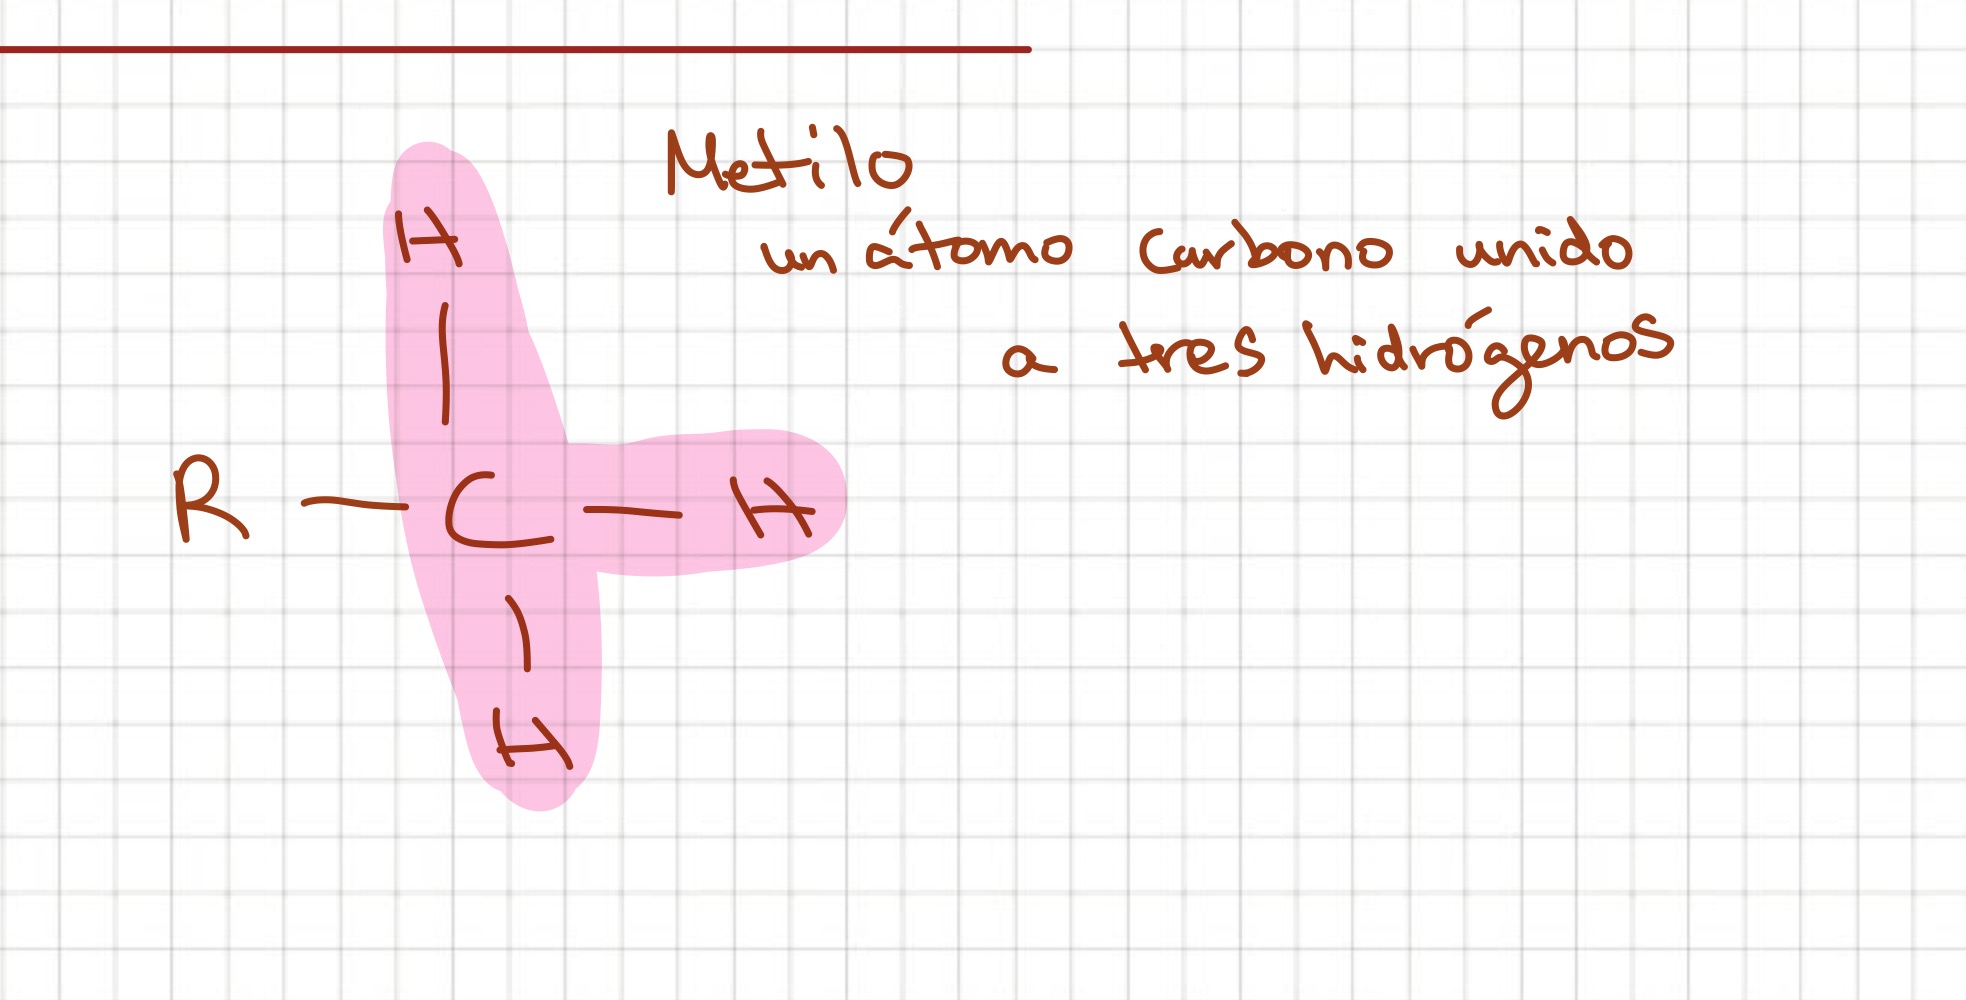 Metilo
un átomo Carbono unido
a tres hidrógenos
H
R — C — H
H